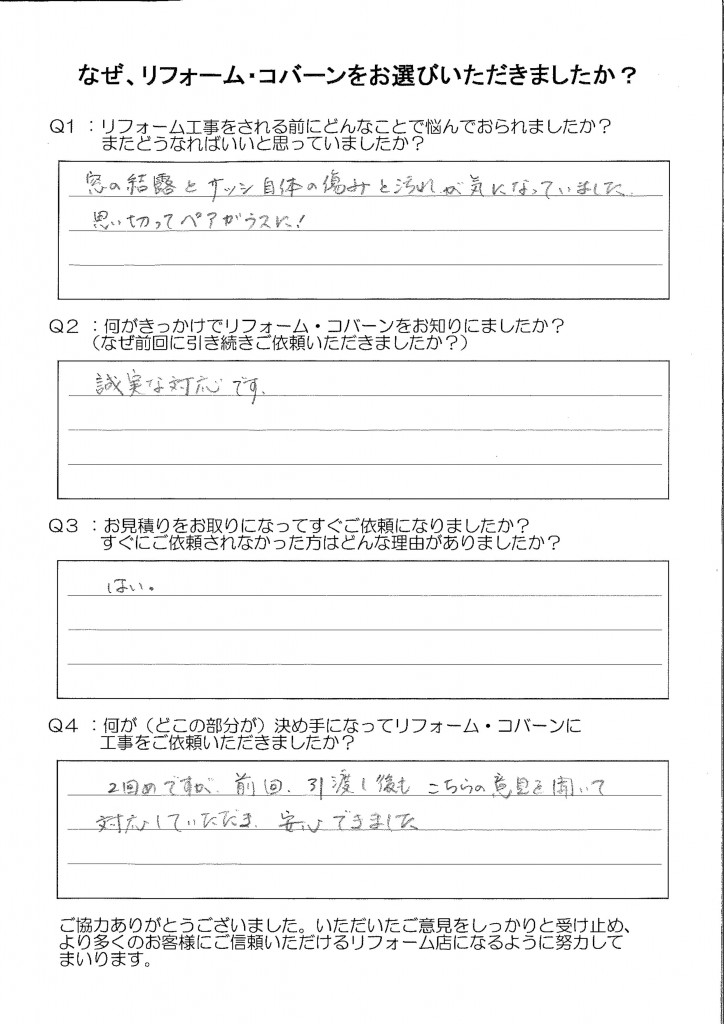 なぜ、リフォーム・コバーンをお選びいただきましたか？
Q1 ：リフォーム工事をされる前にどんなことで悩んでおられましたか？
またどうなればいいと思っていましたか？
窓の結露とサッシ自体の傷みと汚れが気になっていました。
思い切ってペアガラスに！
Q2 ：何がきっかけでリフォーム・コバーンをお知りにましたか？
（なぜ前回に引き続きご依頼いただきましたか？）
誠実な対応です。
Q3 ：お見積りをお取りになってすぐご依頼になりましたか？
すぐにご依頼されなかった方はどんな理由がありましたか？
はい。
Q4 ：何が（どこの部分が）決め手になってリフォーム・コバーンに
工事をご依頼いただきましたか？
2回めですが、前回、引渡し後も こちらの意見を聞いて
対応していただき、安心できました
ご協力ありがとうございました。いただいたご意見をしっかりと受け止め、
より多くのお客様にご信頼いただけるリフォーム店になるように努力して
まいります。